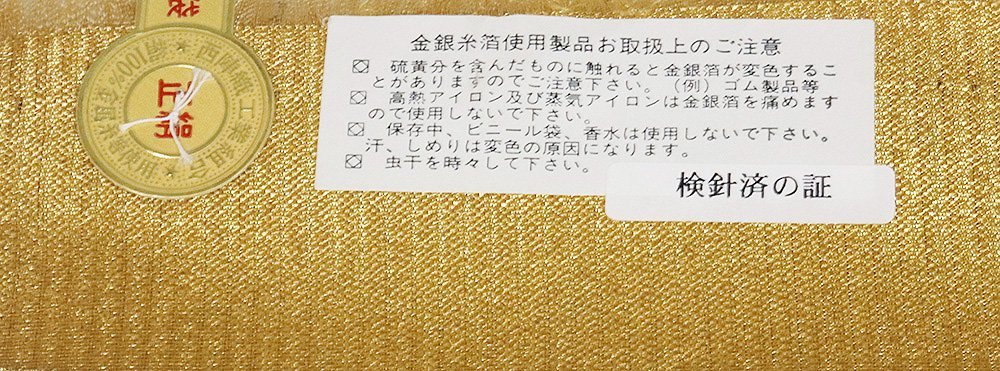 金銀糸箔使用製品お取扱上のご注意
硫黄分を含んだものに触れると金銀箔が変色するこ
とがありますのでご注意下さい。（例）ゴム製品等
高熱アイロン及び蒸気アイロンは金銀箔を痛めます
ので使用しないで下さい。
保存中、ビニール袋、香水は使用しないで下さい。
汗、しめりは変色の原因になります。
虫干を時々して下さい。
検針済の証